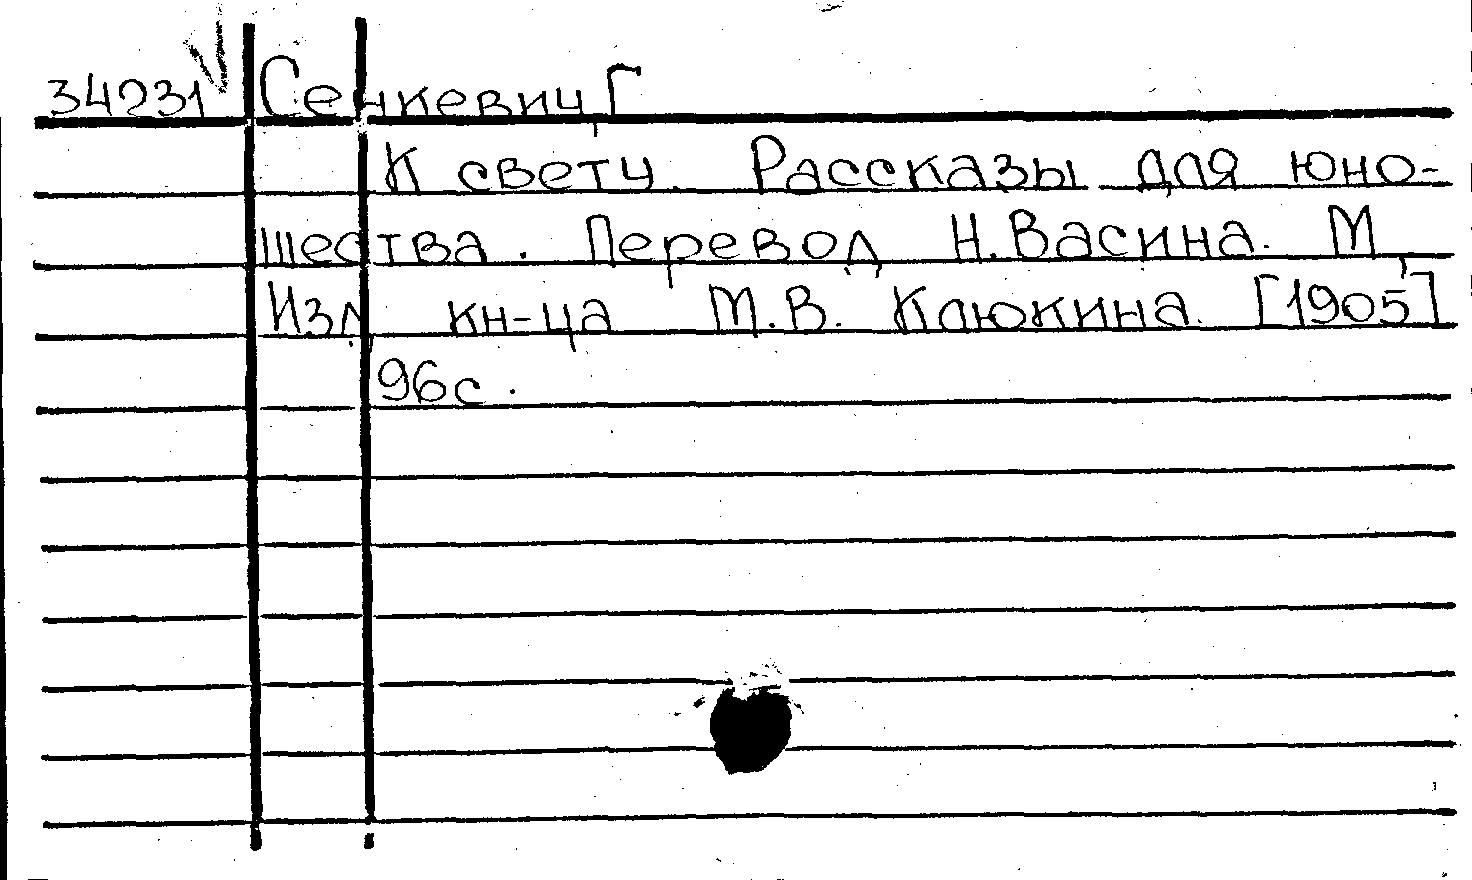 34231 Сенкевич Г
К свету. Рассказы для юно-
шества. Перевод Н.Васина. М,
Изд кн-ца М.В. Клюкина. [1905]
96с.